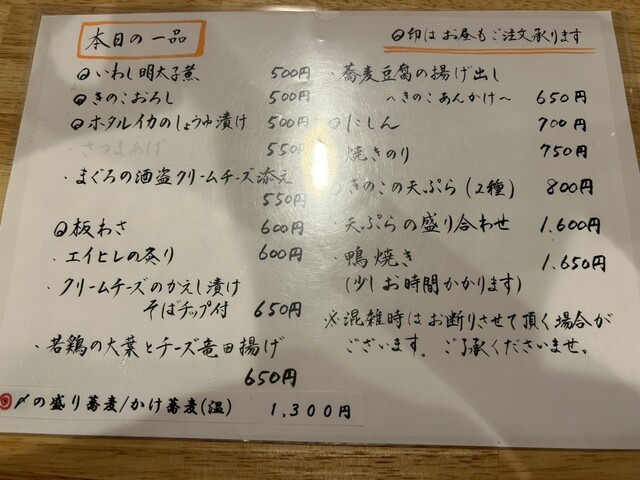 本日の一品
◎印はお昼もご注文承ります
◎いわし明太子煮 500円
◎きのこおろし 500円
◎ホタルイカのしょうゆ漬け 500円
さつまあげ 550円
・まぐろの酒盗クリームチーズ添え
550円
◎板わさ 600円
・エイヒレの炙り 600円
・クリームチーズのかえし漬け
そばチップ付 650円
・若鶏の大葉とチーズ竜田揚げ
650円
◎〆の盛り蕎麦/かけ蕎麦(温) 1,300円
・蕎麦豆腐の揚げ出し
〜きのこあんかけ〜 650円
◎にしん 700円
焼きのり 750円
◎きのこの天ぷら(2種) 800円
・天ぷらの盛り合わせ 1.600円
・鴨焼き 1.650円
(少しお時間かかります)
※混雑時はお断りさせて頂く場合が
ございます。ご了承くださいませ。